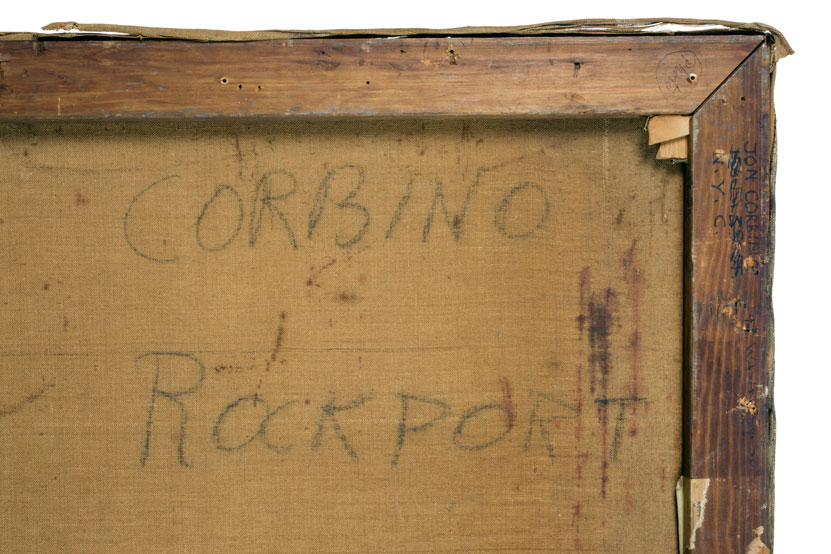 CORBINO
ROCKPORT
JON CORBINO
N. Y. C.